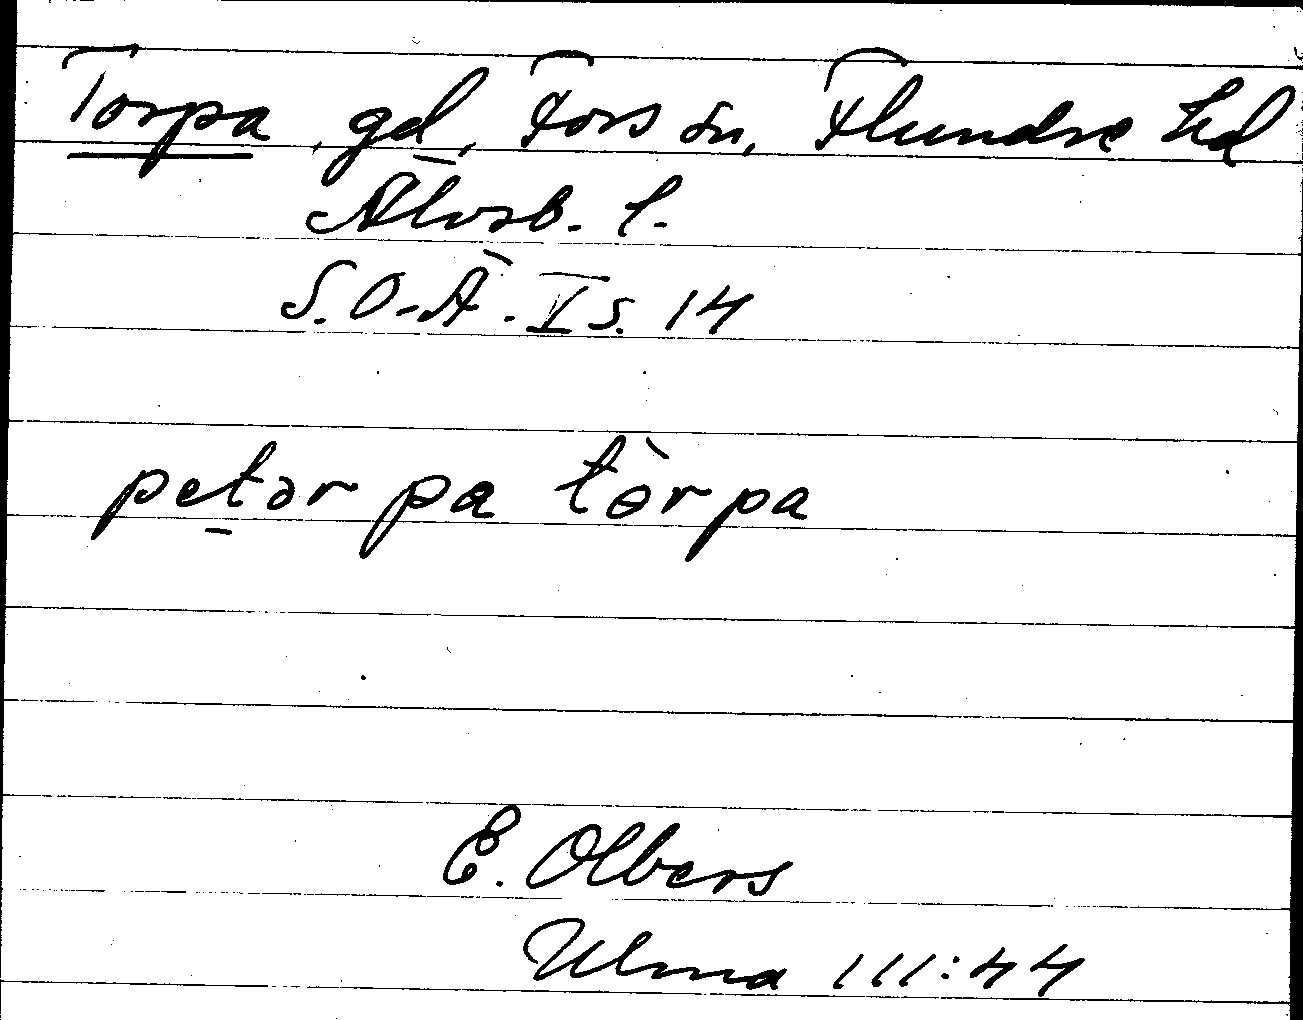 Torpa, gd, Fors sn, Flundre hd
Älvsb. l.
S.O-Ä. I s. 14
petər pa tòrpa
E. Olbers
Ulma 111:44